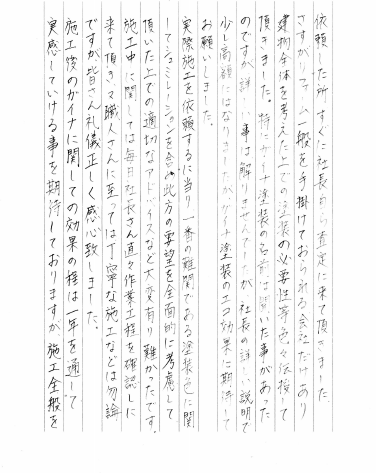 依頼した所すぐに社長自ら査定に来て頂きました。
さすがリフォーム一般を手掛けておられる会社だけあり
建物全体を考えた上での塗装の必要性等色々伝授して
頂きました。特にガイナ塗装の名前は聞いた事があった
のですが詳 事は解りませんでしたが社長の詳しい説明で
少し高額にはなりましたがガイナ塗装のエコ効果に期待して
お願いしました。
実際施工を依頼するに当り一番の難関である塗装色に関
してシュミレーションを含め此方の要望を全面的に考慮して
頂いた上での適切なアドバイスなど大変有り難かったです。
施工中に関しては毎日社長さん直々作業工程を確認しに
来て頂き職人さんに至っては丁寧な施工などは勿論
ですが皆さん礼儀正しく感心致しました。
施工後のガイナに関しての効果の程は一年を通して
実感していける事を期待しておりますが施工全般を